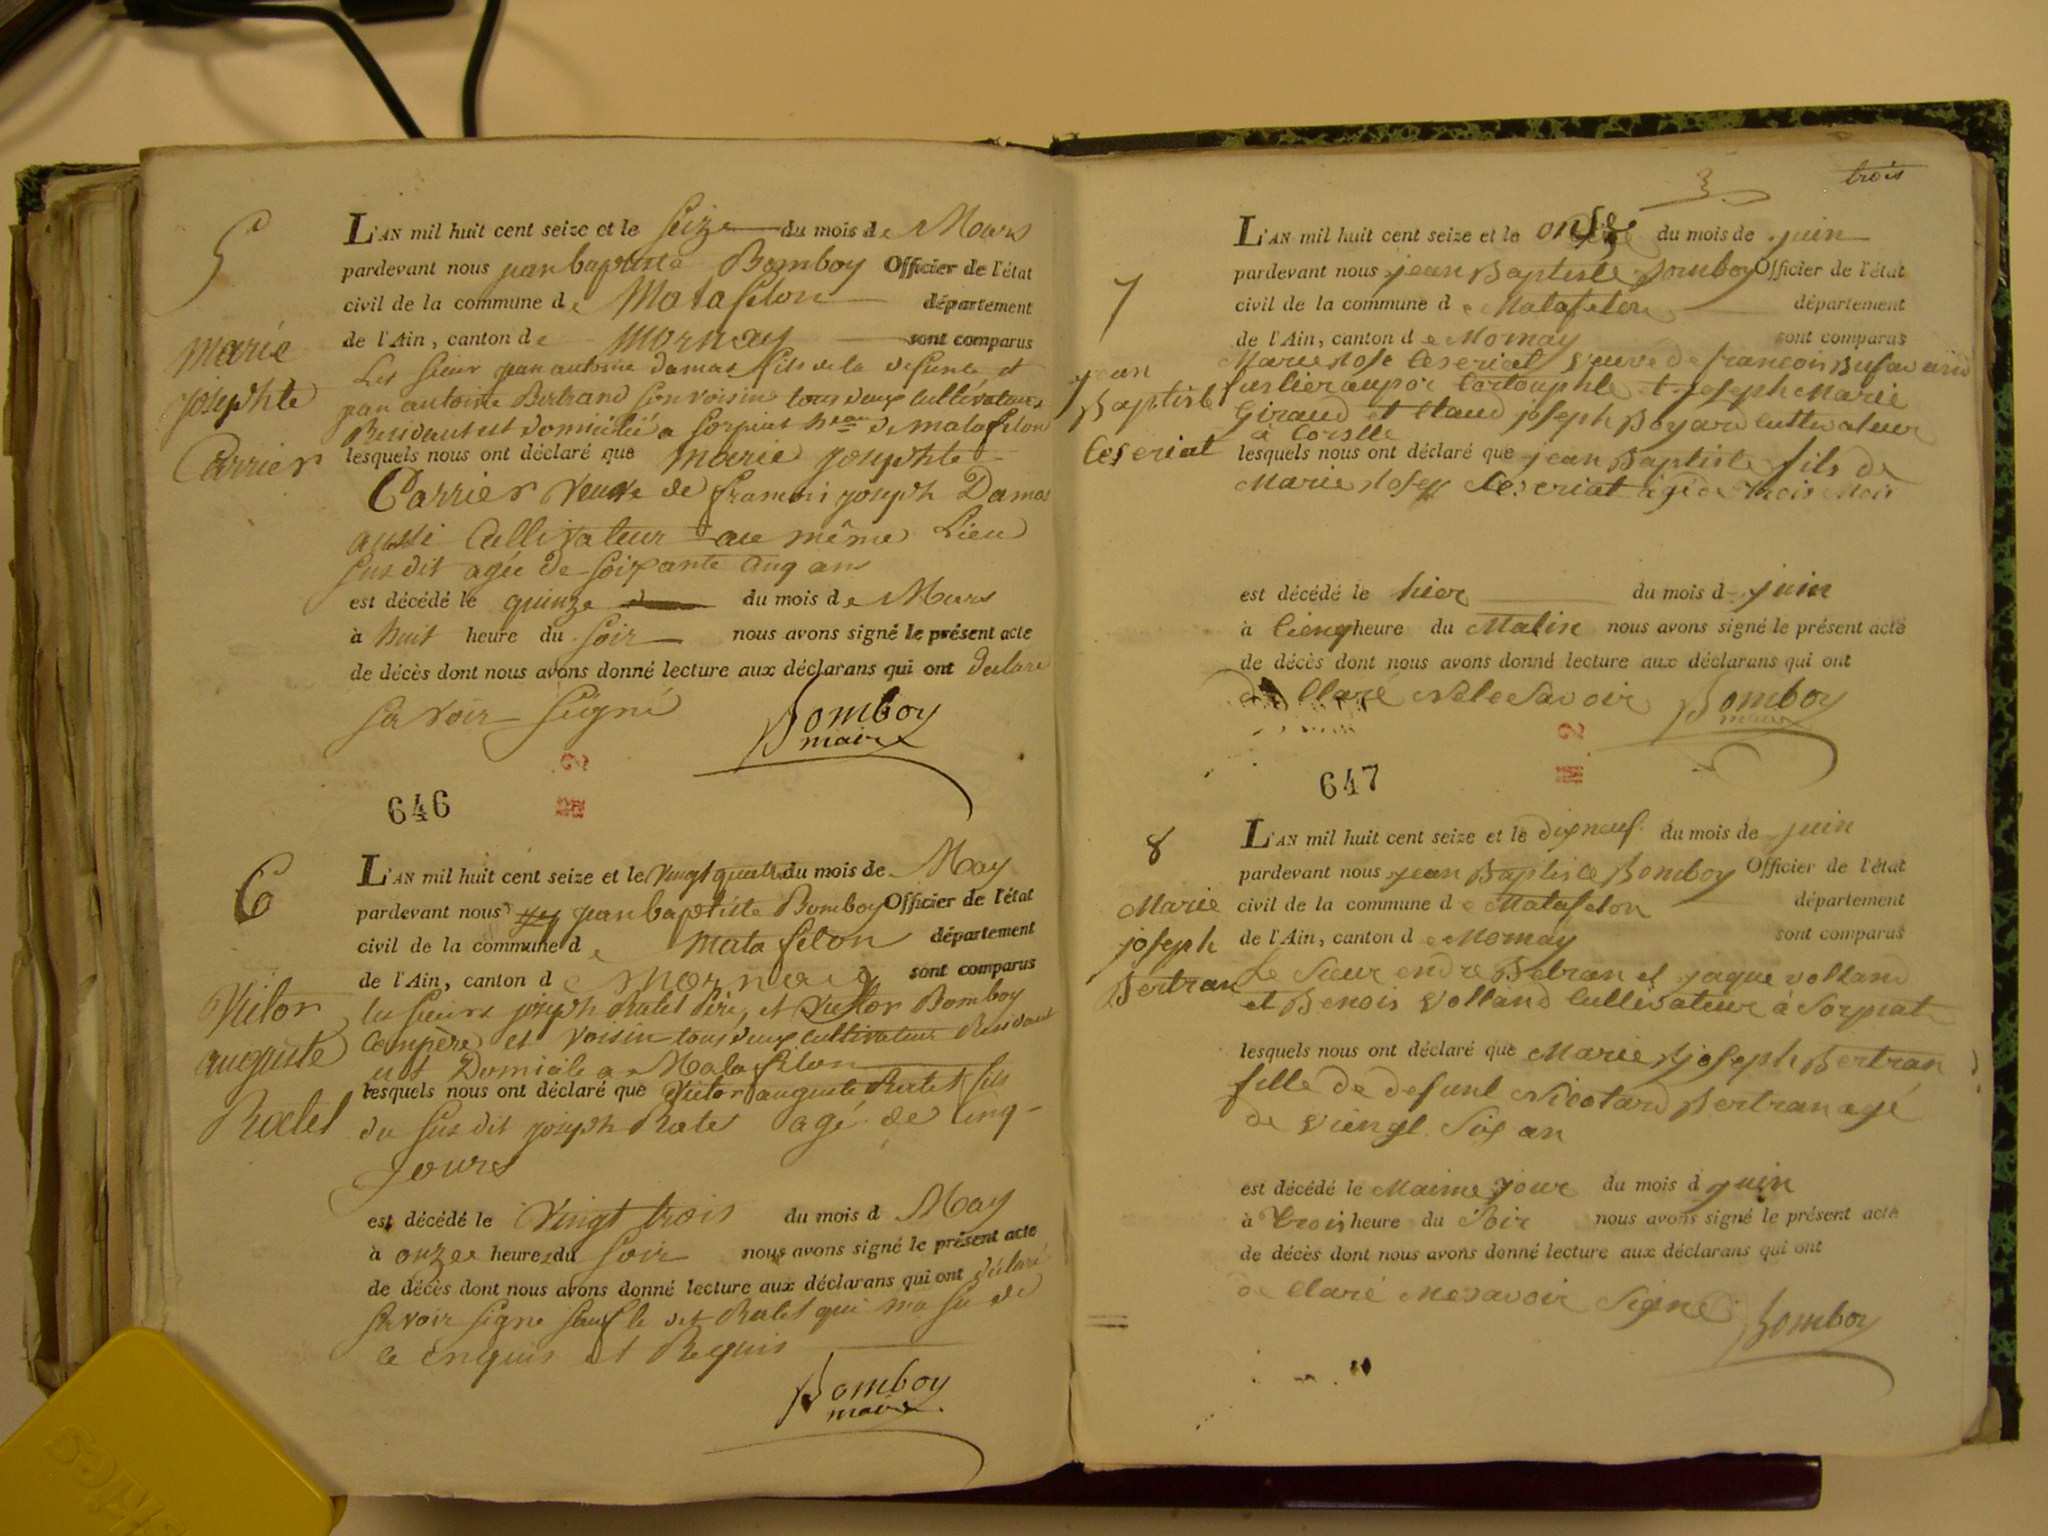 5
Marie
josephte
Carrier
L'AN mil huit cent seize et le seize du mois de Mars
pardevant nous jean baptiste Bomboy Officier de l'état
civil de la commune de Matafelon département
de l'Ain, canton de Mornay sont comparus
Les sieur jean antoine damas fils de la defunte et
jean antoine Bertrand son voisin tous deux Cultivateurs
Residant et domicilié a Sorpiat heau de matafelon
lesquels nous ont déclaré que marie josephte
Carrier veuve de francoi joseph Damas
aussi Cultivateur au même Lieu
sus dit agée de soixante cinq ans
est décédé le quinze du mois de Mars
à huit heure du soir nous avons signé le présent acte
de décès dont nous avons donné lecture aux déclarans qui ont déclaré
savoir signé Bomboy
maire
646
M. 2
6
Victor
auguste
Ratel
L'AN mil huit cent seize et le vingt quatre du mois de May
pardevant nous jean baptiste Bomboy Officier de l'état
civil de la commune de matafelon département
de l'Ain, canton de Mornay sont comparus
les sieurs joseph Ratel Père, et Victor Bomboy
Compère et voisin tous deux cultivateur Residant
et Domicile a Matafelon
lesquels nous ont déclaré que Victor auguste Ratel fils
du sus dit joseph Ratel agé de cinq
jours
est décédé le vingt trois du mois d May
à onze heures du soir nous avons signé le présent acte
de décès dont nous avons donné lecture aux déclarans qui ont déclaré
savoir signe sauf le dit Ratel qui na su de
ce enquis et Requis
Bomboy
maire
3 trois
7
jean
Baptiste
Ceseriat
L'AN mil huit cent seize et le onze du mois de juin
pardevant nous jean Baptiste Bomboy Officier de l'état
civil de la commune de Matafelon département
de l'Ain, canton de Mornay sont comparus
Marie Ceseriat veuve de francois
et joseph Marie
Giraud et Claud joseph Boyard cultivateur
à Corcelle
lesquels nous ont déclaré que jean Baptiste fils de
Marie Ceseriat agé de trois Mois
est décédé le hier du mois d juin
à cienq heure du Matin nous avons signé le présent acte
de décès dont nous avons donné lecture aux déclarans qui ont
de Claré ne le savoir Bomboy
maire
647
M. 2
8
Marie
joseph
Bertran
L'AN mil huit cent seize et le dix neuf du mois de juin
pardevant nous jean Baptiste Bomboy Officier de l'état
civil de la commune de Matafelon département
de l'Ain, canton de Mornay sont comparus
Le sieur endre Betran et jaque volland
et Benois volland cultivateur à Sorpiat
lesquels nous ont déclaré que Marie joseph Bertran
fille de defunt Nicolard Bertran agé
de viengt six an
est décédé le Maime jour du mois d juin
à trois heure du soir nous avons signé le présent acte
de décès dont nous avons donné lecture aux déclarans qui ont
de Claré ne savoir signe
Bomboy